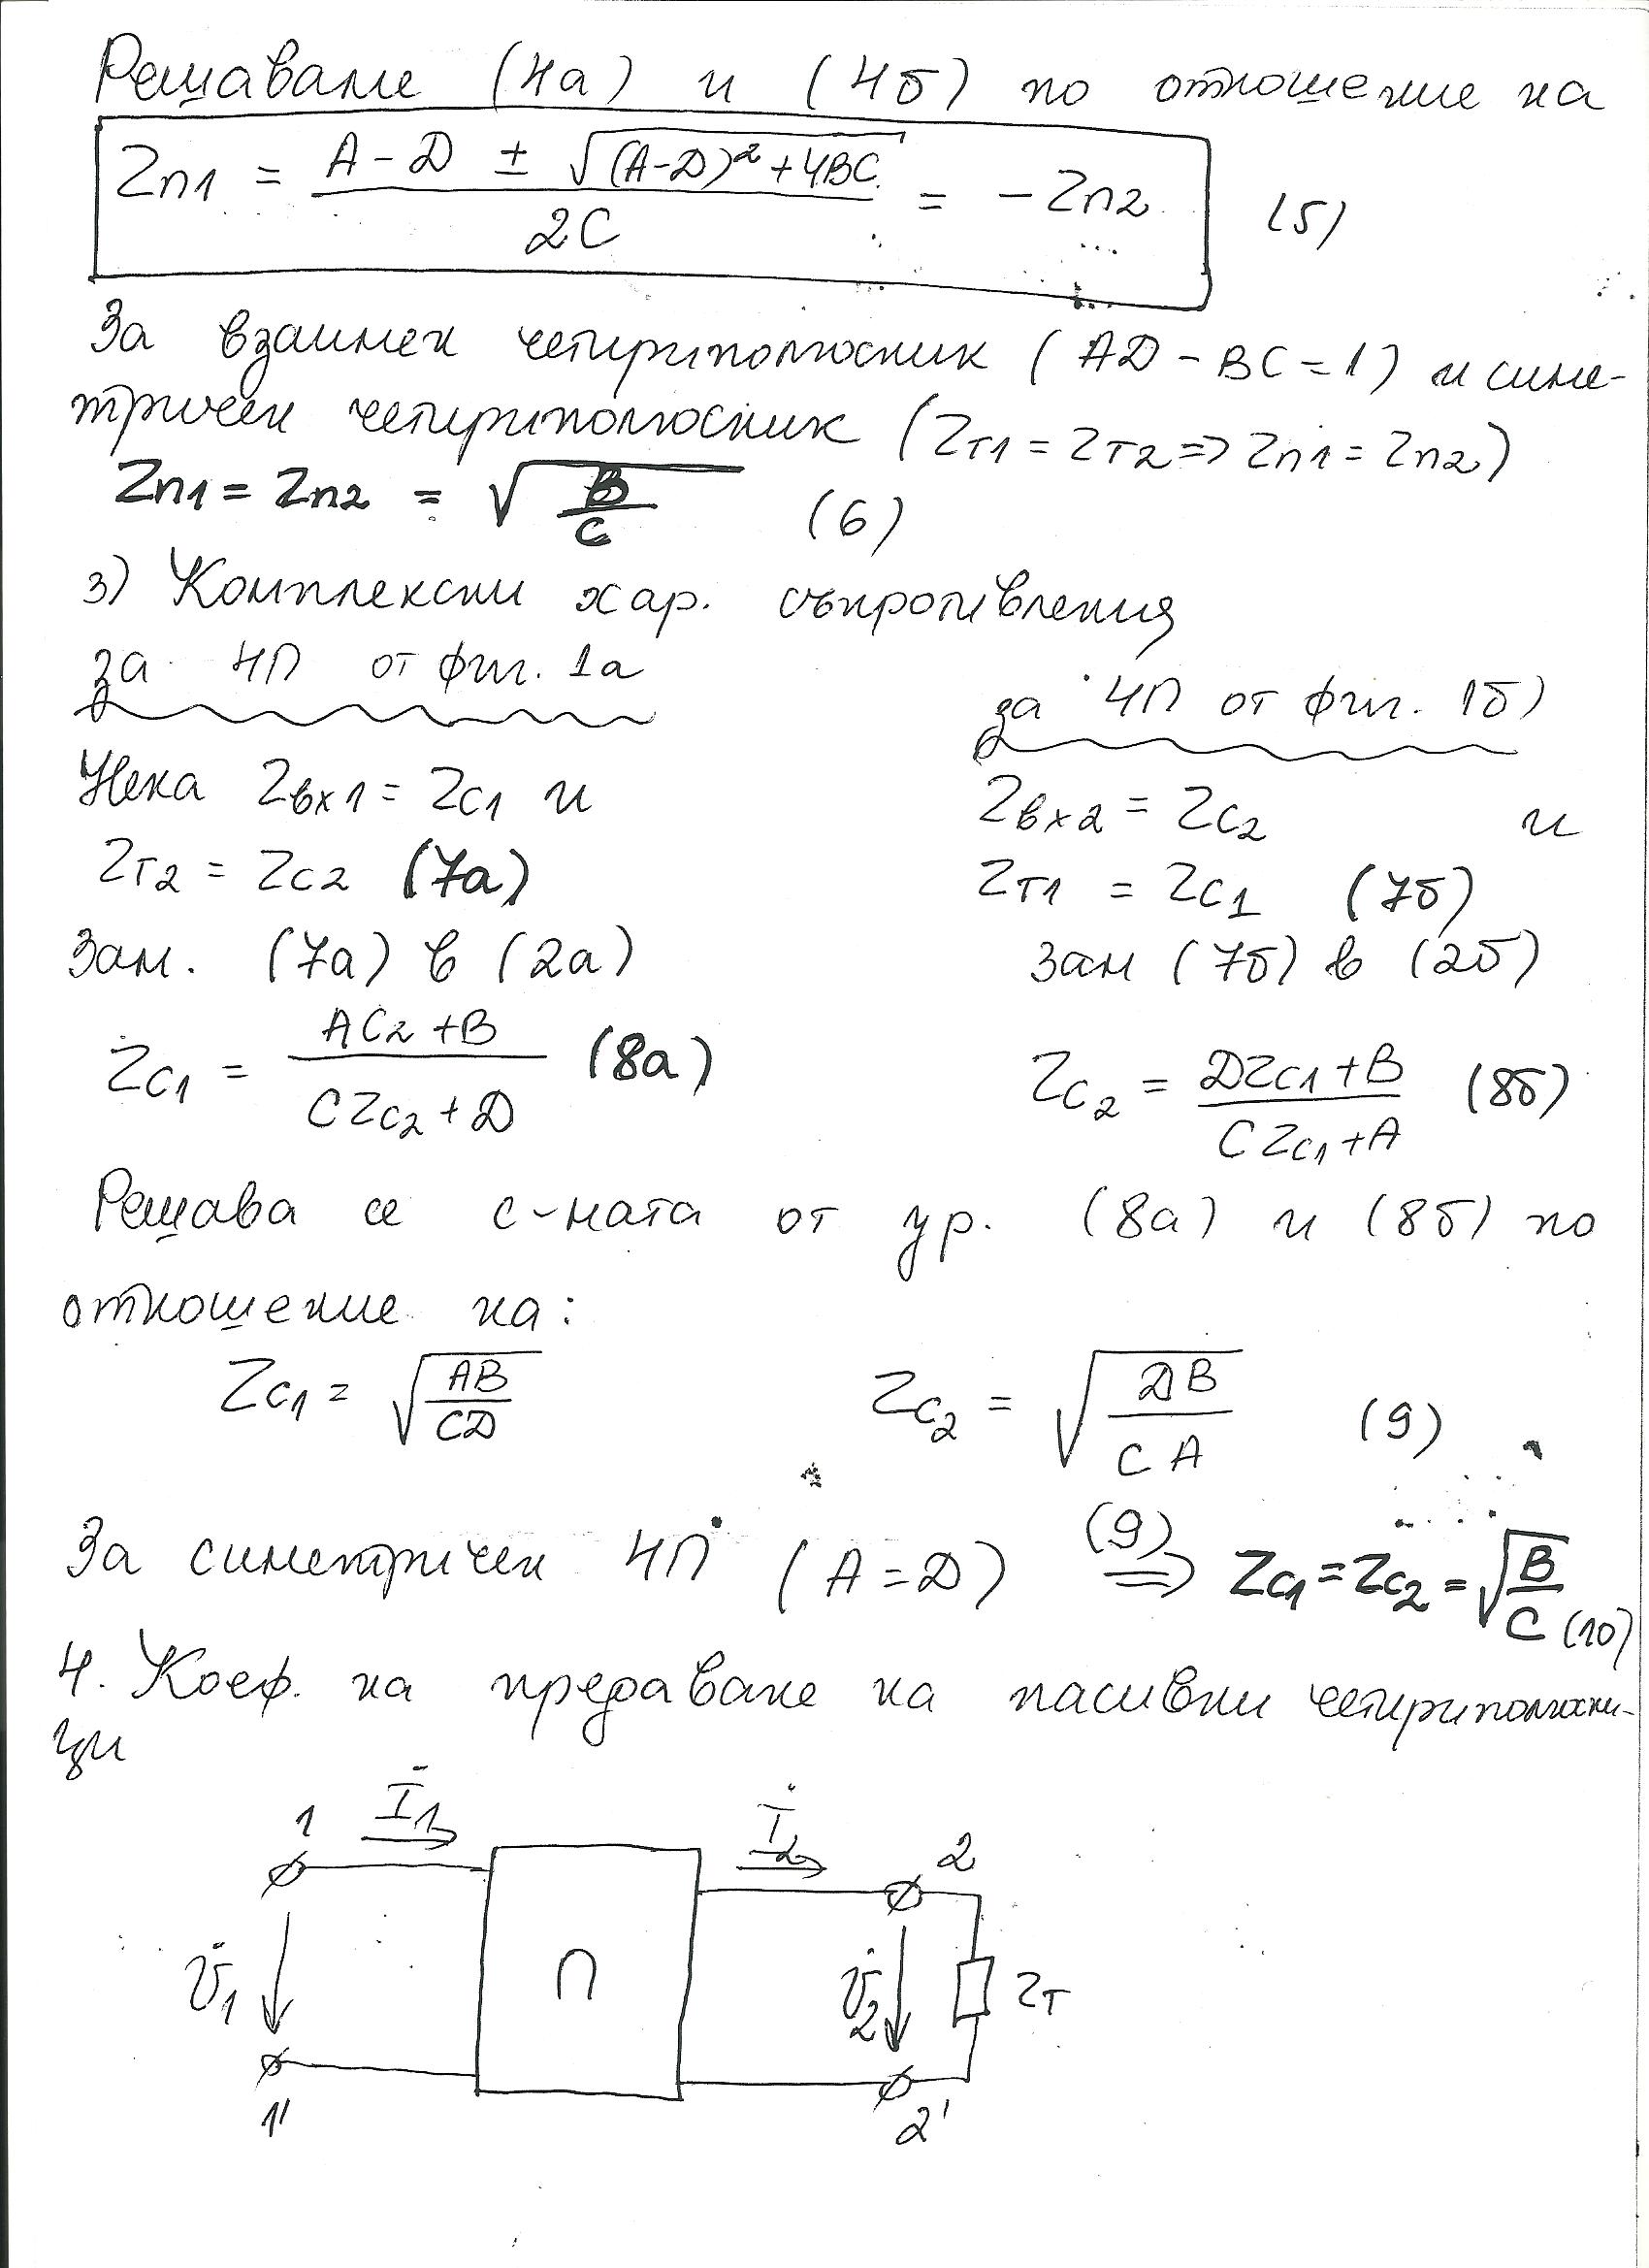 Решаваме (4а) и (4б) по отношение на
Zп1 = (A - D ± √((A-D)² + 4BC)) / 2C = - Zп2 (5)
За взаимен четириполюсник (AD - BC = 1) и симе-
тричен четириполюсник (Zт1 = Zт2 => Zп1 = Zп2)
Zп1 = Zп2 = √(B/C) (6)
3) Комплексни хар. съпротивления
за 4П от фиг. 1а
за 4П от фиг. 1б)
Нека Zвх1 = Zc1 и
Zвх2 = Zc2 и
Zт2 = Zc2 (7а)
Zт1 = Zc1 (7б)
Зам. (7а) в (2а)
Зам (7б) в (2б)
Zc1 = (AC2 + B) / (CZc2 + D) (8а)
Zc2 = (DZc1 + B) / (CZc1 + A) (8б)
Решава се с-мата от ур. (8а) и (8б) по
отношение на:
Zc1 = √(AB/CD) Zc2 = √(DB/CA) (9)
За симетричен 4П (A = D) (9) => Zc1 = Zc2 = √(B/C) (10)
4. Коеф. на предаване на пасивни четириполюсни-
ци
1 İ1 İ2 2
U̇1 П U̇2 Zт
1' 2'